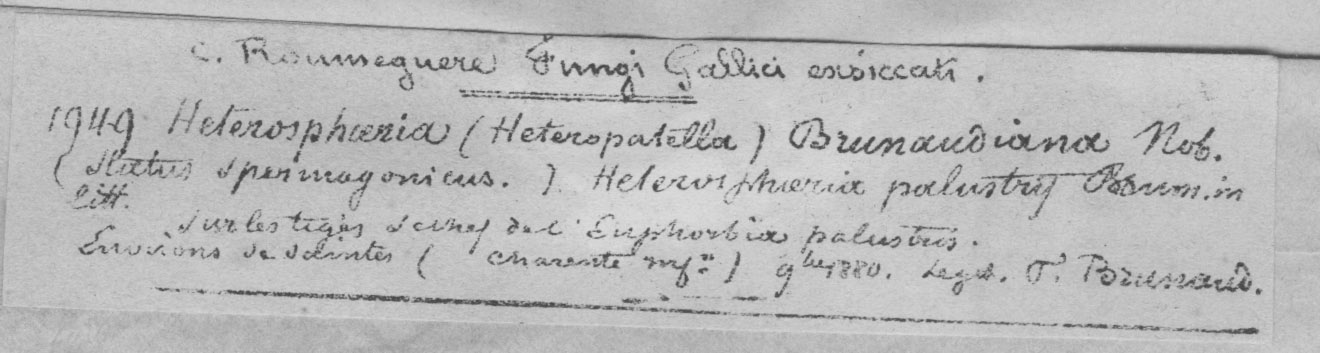 C. Roumeguere Fungi Gallici exsiccati.
1949 Heterosphæria (Heteropatella) Brunaudiana Nob.
(Status spermogonicus.) Heterosphæria palustris Brun. in
litt.
sur les tiges seches de l'Euphorbia palustris.
Environs de Saintes (Charente inf.re) 9bre 1880. Legit. P. Brunaud.